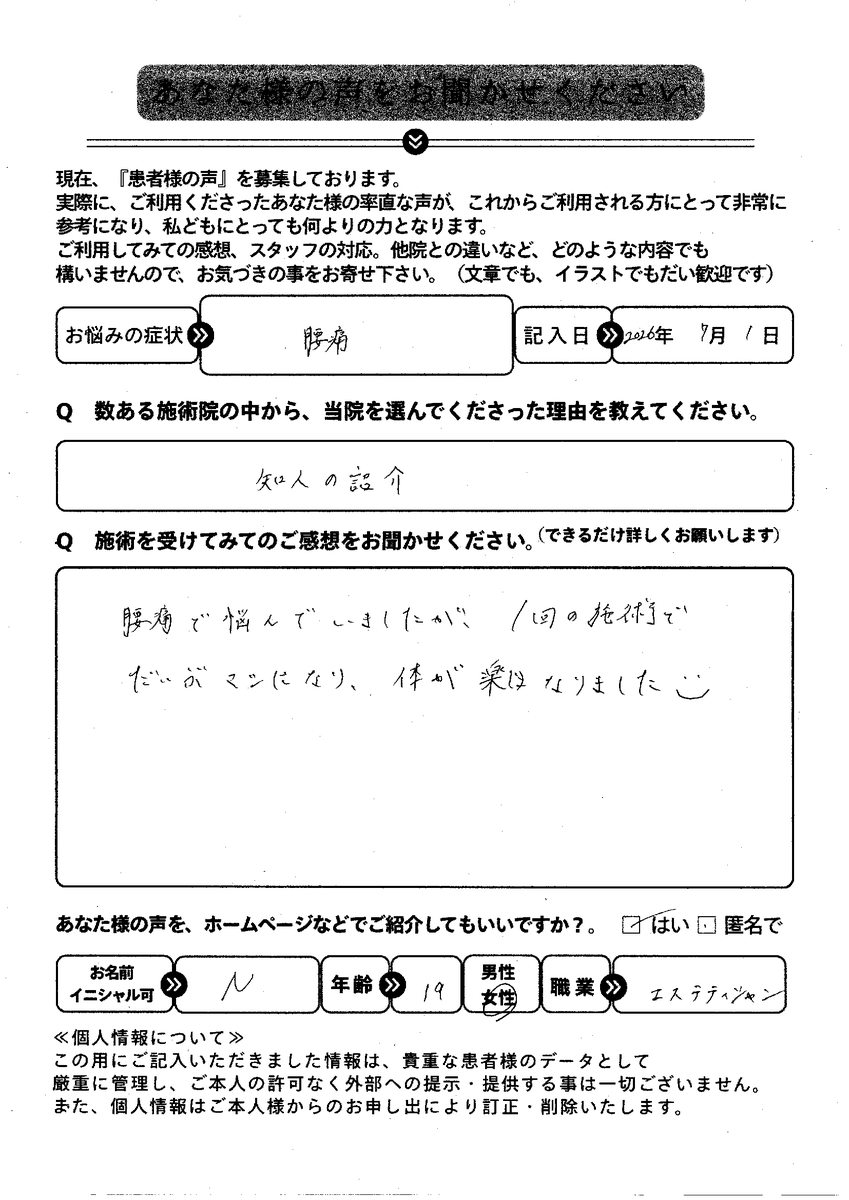 あなた様の声をお聞かせください
現在、『患者様の声』を募集しております。
実際に、ご利用くださったあなた様の率直な声が、これからご利用される方にとって非常に
参考になり、私どもにとっても何よりの力となります。
ご利用してみての感想、スタッフの対応。他院との違いなど、どのような内容でも
構いませんので、お気づきの事をお寄せ下さい。（文章でも、イラストでもだい歓迎です）
お悩みの症状 腰痛 記入日 2026年 7月 1日
Q 数ある施術院の中から、当院を選んでくださった理由を教えてください。
知人の紹介
Q 施術を受けてみてのご感想をお聞かせください。（できるだけ詳しくお願いします）
腰痛で悩んでいましたが、1回の施術で
だいぶマシになり、体が楽になりました
あなた様の声を、ホームページなどでご紹介してもいいですか？。 はい 匿名で
お名前 イニシャル可 N 年齢 19 男性 女性 職業 エステティシャン
≪個人情報について≫
この用にご記入いただきました情報は、貴重な患者様のデータとして
厳重に管理し、ご本人の許可なく外部への提示・提供する事は一切ございません。
また、個人情報はご本人様からのお申し出により訂正・削除いたします。